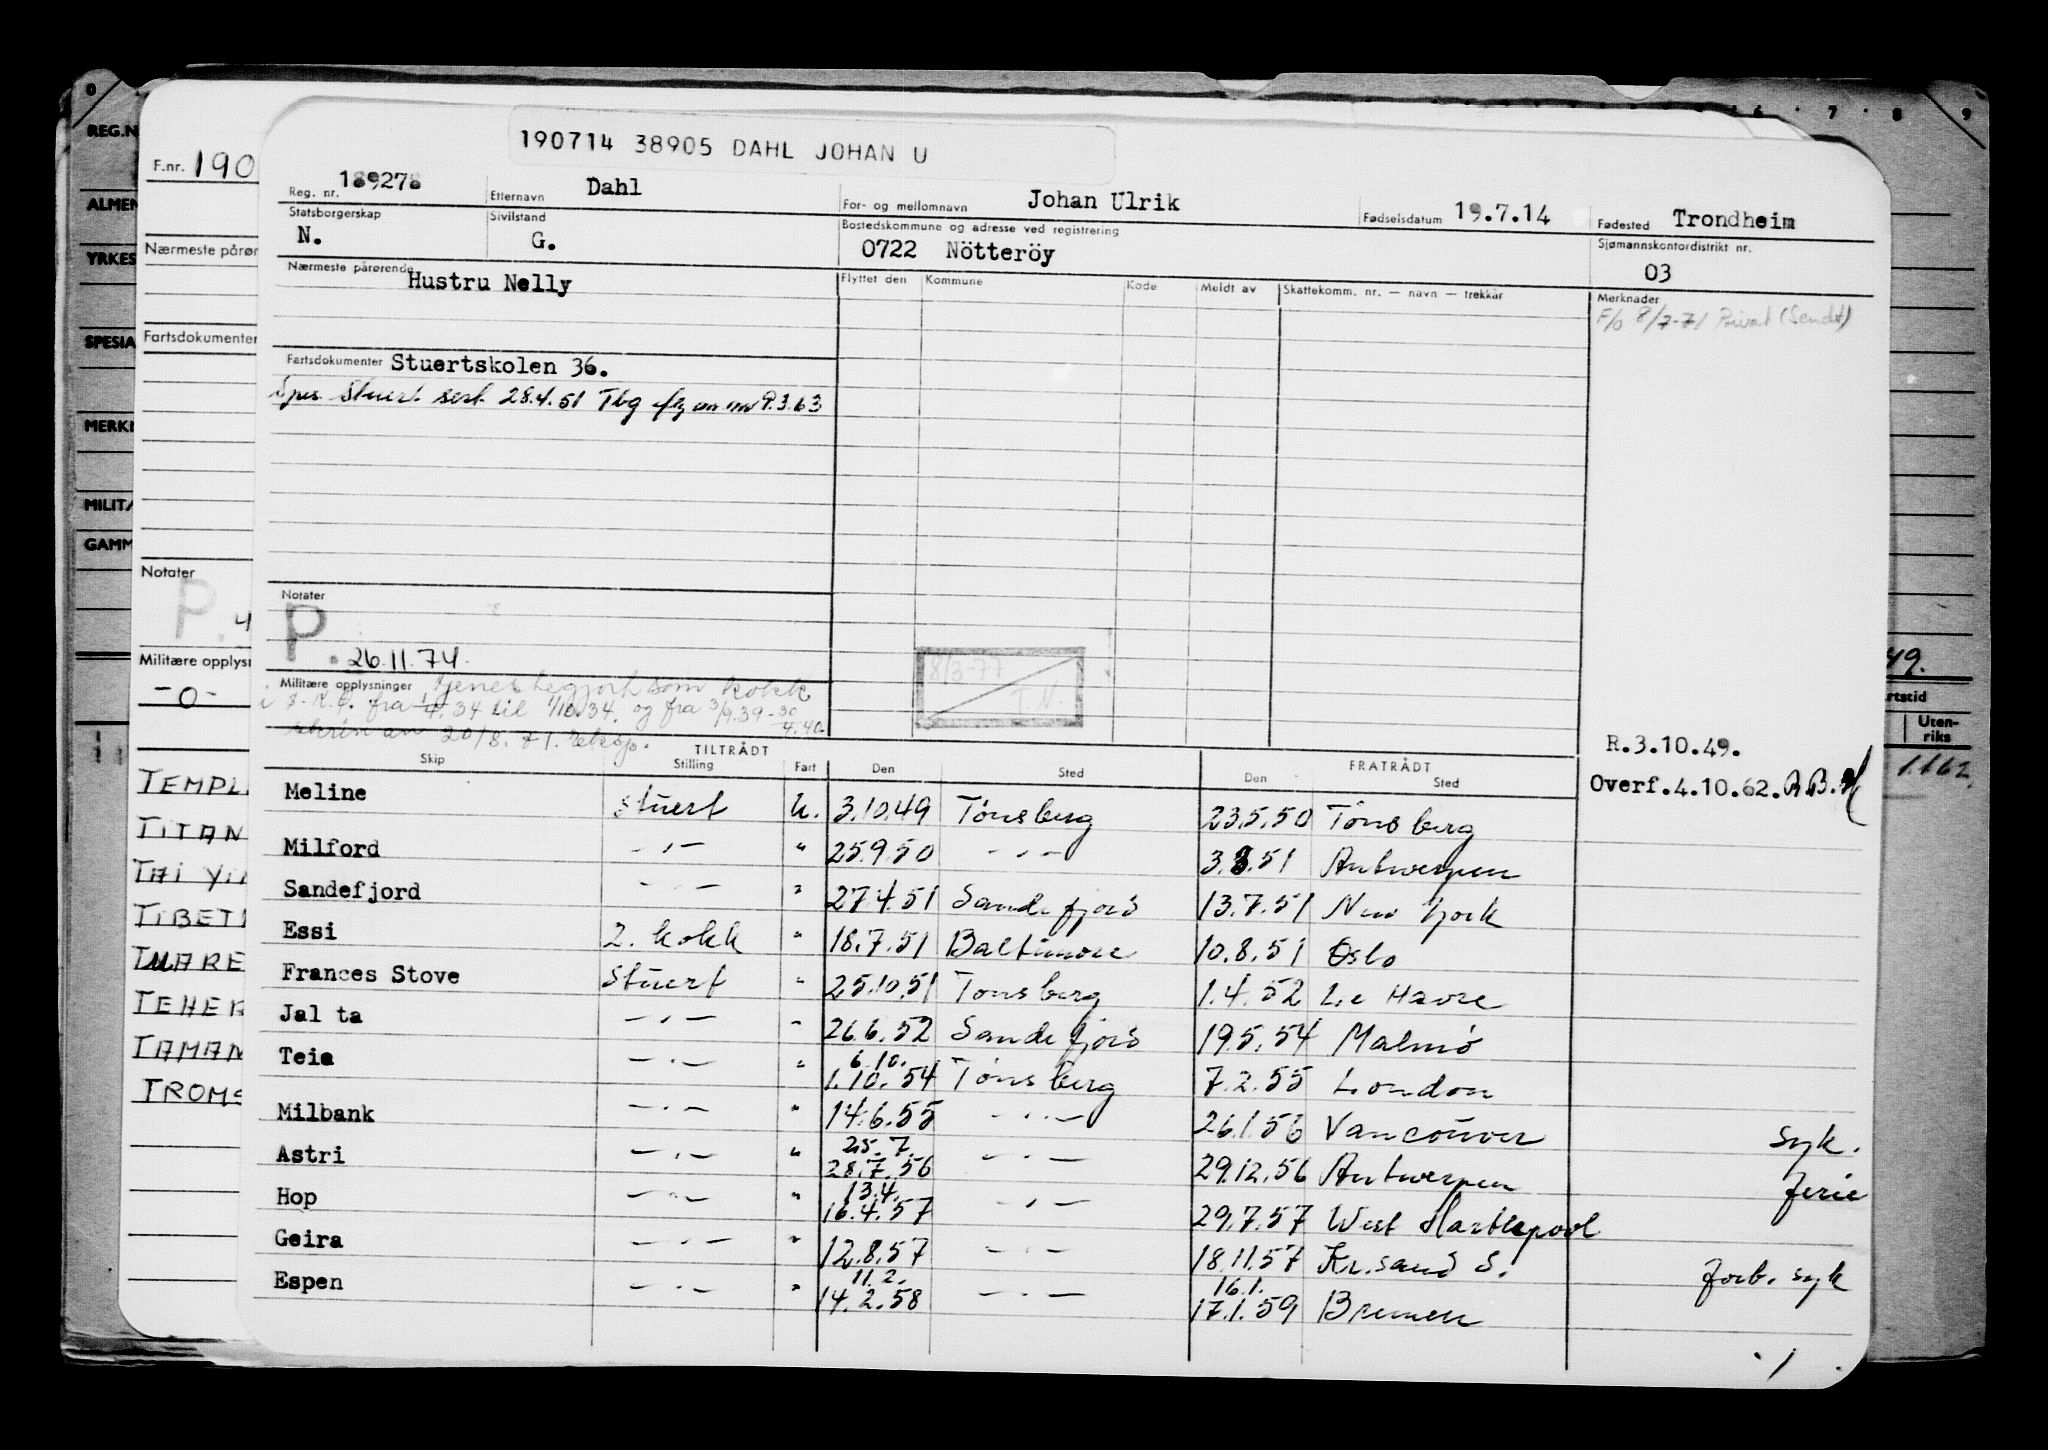 190714 38905 DAHL JOHAN U
Reg. nr. 189278 Etternavn Dahl For- og mellomnavn Johan Ulrik Fødselsdatum 19.7.14 Fødested Trondheim
Statsborgerskap N. Sivilstand G. Bostedskommune og adresse ved registrering 0722 Nötteröy Sjømannskontordistrikt nr. 03
Nærmeste pårørende Hustru Nelly Flyttet den Kommune Kode Meldt av Skattekomm. nr. — navn — trekkår Merknader
F/o 8/7-71 Privat (Sendt)
Fartsdokumenter Stuertskolen 36.
Stuert sert. 28.4.51 Tbg 9.3.63
Notater
P. 26.11.74.
8/3-77
T.N.
Militære opplysninger Tjeneste gjort som kokk
i fra 1/4.34 til 1/10.34. og fra 3/9.39 - 30/4.40.
20/8.71.
TILTRÅDT FRATRÅDT
Skip Stilling Fart Den Sted Den Sted
R.3.10.49.
Overf.4.10.62.
Meline Stuert U. 3.10.49 Tönsberg 23.5.50 Tönsberg
Milford - , - " 25.9.50 - , - 3.8.51 Antwerpen
Sandefjord - , - " 27.4.51 Sandefjord 13.7.51 New York
Essi 2. kokk " 18.7.51 Baltimore 10.8.51 Oslo
Frances Stove Stuert " 25.10.51 Tönsberg 1.4.52 Le Havre
Jal ta - , - " 26.6.52 Sandefjord 19.5.54 Malmö
Teia - , - " 6.10. 1.10.54 Tönsberg 7.2.55 London
Milbank - , - " 14.6.55 - , - 26.1.56 Vancouver syk.
Astri - , - " 25.7. 28.7.56 - , - 29.12.56 Antwerpen ferie
Hop - , - " 13.4. 16.4.57 - , - 29.7.57 West Hartlepool
Geira - , - " 12.8.57 - , - 18.11.57 Kr.sand S. forb. syk
Espen - , - " 11.2. 14.2.58 - , - 16.1. 17.1.59 Bremen
1
F.nr. 190
Nærmeste pårør
Fartsdokumenter
Notater
P. 4
Militære opplysn
-0-
TEMPL
TITAN
TAI YI
TIBET
TEHER
TAMAN
TROMS
0 6 7 8 9
REG.N
ALMEN
YRKES
SPESIA
MERK
MILITÆ
GAMM
49.
rtstid
Uten-
riks